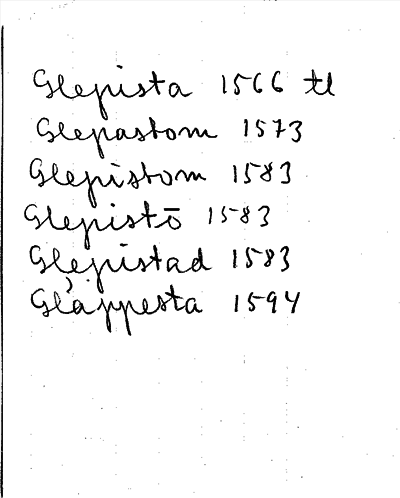 Glepista 1566 tl
Glepastom 1573
Glepistom 1583
Glepistō 1583
Glepistad 1583
Gläppesta 1594